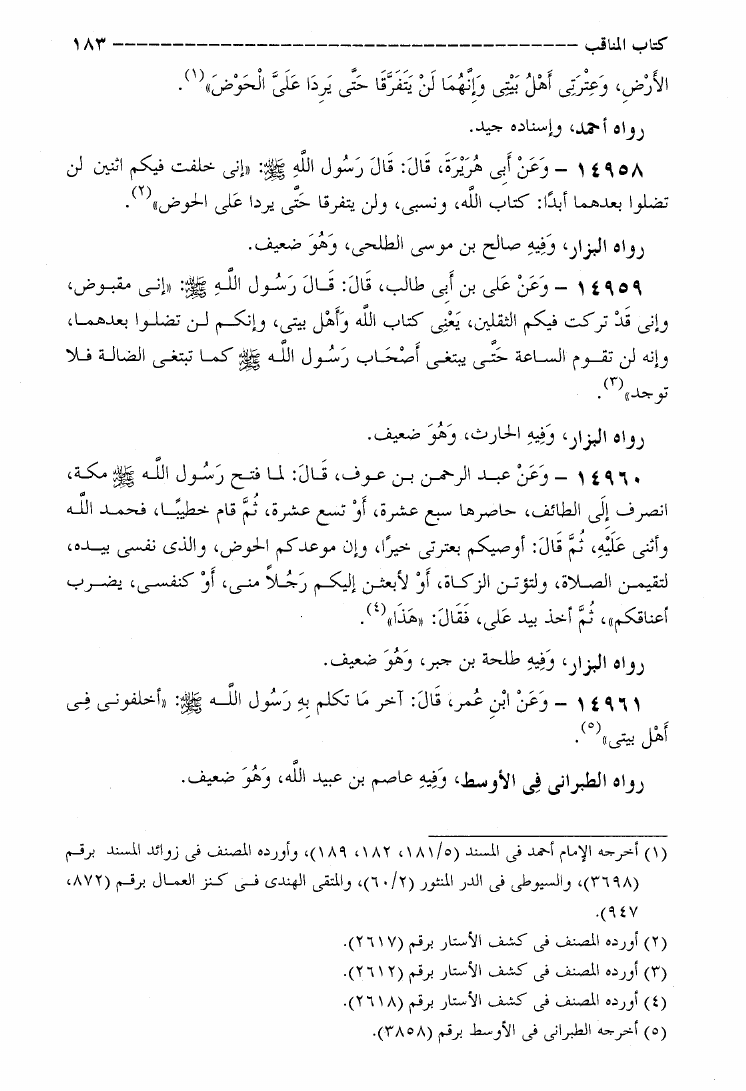 كتاب المناقب --------------------------------------- ١٨٣
الأَرْضِ، وَعِتْرَتِى أَهْلُ بَيْتِى وَإِنَّهُمَا لَنْ يَتَفَرَّقَا حَتَّى يَرِدَا عَلَىَّ الْحَوْضَ»(١).
رواه أحمد، وإسناده جيد.
١٤٩٥٨ – وَعَنْ أَبِى هُرَيْرَةَ، قَالَ: قَالَ رَسُول اللَّهِ ﷺ: «إنى خلفت فيكم اثنين لن
تضلوا بعدهما أبدًا: كتاب الله، ونسبى، ولن يتفرقا حَتَّى يردا عَلى الحوض»(٢).
رواه البزار، وَفِيهِ صالح بن موسى الطلحى، وَهُوَ ضعيف.
١٤٩٥٩ – وَعَنْ على بن أَبِى طالب، قَالَ: قَالَ رَسُول اللَّهِ ﷺ: «إنى مقبوض،
وإنى قَدْ تركت فيكم الثقلين، يَعْنِى كتاب الله وَأَهْل بيتى، وإنكم لن تضلوا بعدهما،
وإنه لن تقوم الساعة حَتَّى يبتغى أَصْحَاب رَسُول اللَّه ﷺ كما تبتغى الضالة فلا
توجد»(٣).
رواه البزار، وَفِيهِ الحارث، وَهُوَ ضعيف.
١٤٩٦٠ – وَعَنْ عبد الرحمن بن عوف، قَالَ: لما فتح رَسُول اللَّه ﷺ مكة،
انصرف إِلَى الطائف، حاصرها سبع عشرة، أَوْ تسع عشرة، ثُمَّ قام خطيبًا، فحمد اللَّه
وأثنى عَلَيْهِ، ثُمَّ قَالَ: أوصيكم بعترتى خيرًا، وإن موعدكم الحوض، والذى نفسى بيده،
لتقيمن الصلاة، ولتؤتن الزكاة، أَوْ لأبعثن إليكم رَجُلاً منى، أَوْ كنفسى، يضرب
أعناقكم»، ثُمَّ أخذ بيد على، فَقَالَ: «هَذَا»(٤).
رواه البزار، وَفِيهِ طلحة بن جبر، وَهُوَ ضعيف.
١٤٩٦١ – وَعَنْ ابْنِ عُمر، قَالَ: آخر مَا تكلم بِهِ رَسُول اللَّه ﷺ: «أخلفونى فِى
أَهْل بيتى»(٥).
رواه الطبرانى فِى الأوسط، وَفِيهِ عاصم بن عبيد الله، وَهُوَ ضعيف.
(١) أخرجه الإمام أحمد فى المسند (١٨١/٥، ١٨٢، ١٨٩)، وأورده المصنف فى زوائد المسند برقم
(٣٦٩٨)، والسيوطى فى الدر المنثور (٦٠/٢)، والمتقى الهندى فى كنز العمال برقم (٨٧٢،
٩٤٧).
(٢) أورده المصنف فى كشف الأستار برقم (٢٦١٧).
(٣) أورده المصنف فى كشف الأستار برقم (٢٦١٢).
(٤) أورده المصنف فى كشف الأستار برقم (٢٦١٨).
(٥) أخرجه الطبرانى فى الأوسط برقم (٣٨٥٨).